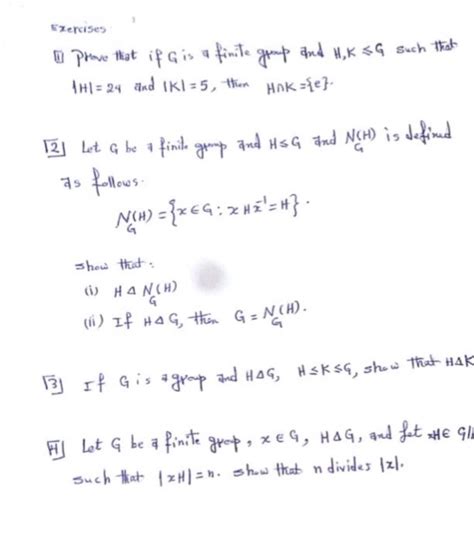 Exercises
[1] Prove that if G is a finite group and H,K ≤ G such that
|H| = 24 and |K| = 5, then H∩K = {e}.
[2] Let G be a finite group and H≤G and N_G(H) is defined
as follows.
N_G(H) = {x ∈ G : x H x⁻¹ = H}.
show that:
(i) H Δ N_G(H)
(ii) If H Δ G, then G = N_G(H).
[3] If G is a group and H Δ G, H ≤ K ≤ G, show that H Δ K
[4] Let G be a finite group, x ∈ G, H Δ G, and let xH ∈ G/
such that |xH| = n. show that n divides |x|.